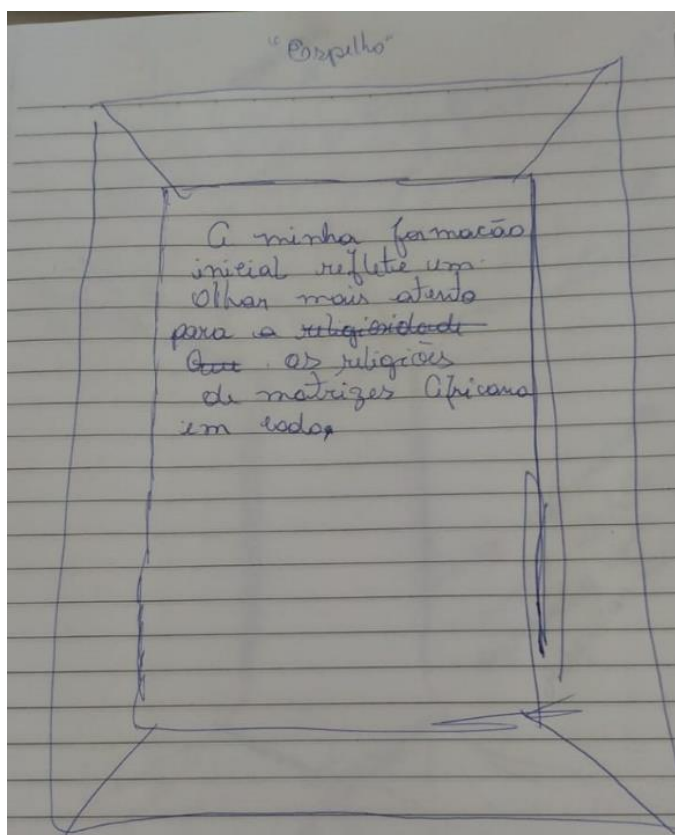 "Espelho"
A minha formação
inicial reflete um
olhar mais atento
para a religiosidade
Que os religiões
de matrizes Africana
em